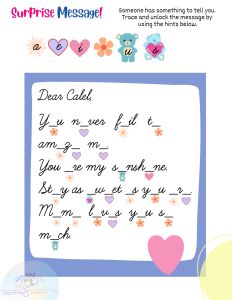 Surprise Message!
Someone has something to tell you.
Trace and unlock the message by
using the hints below.
a e i u s
Dear Calel,
Y_u n_ver f_il t_
am_z_ m_.
You _re my s_nsh_ne.
St_y as _w_et _s y_u _r_.
M_m_ l_v_s y_u s_
m_ch.